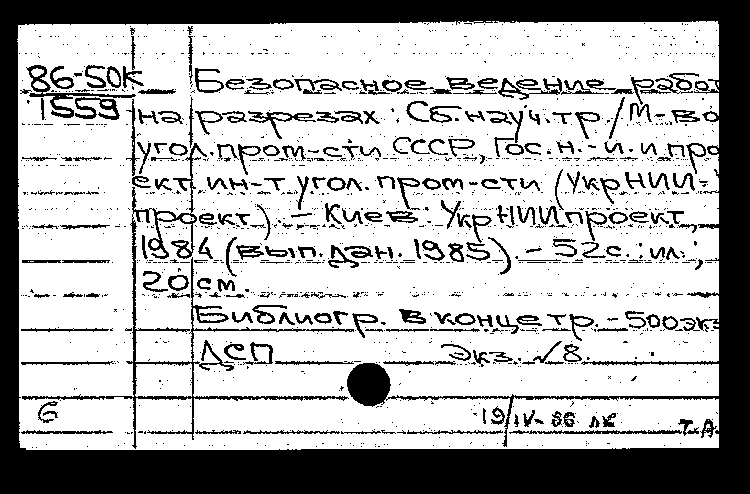 86-50К Безопасное ведение работ
1559 на разрезах : Сб. науч. тр. / М-во
угол. пром-сти СССР, Гос. н.-и. и про
ект. ин-т угол. пром-сти (УкрНИИ-
проект). - Киев : УкрНИИпроект,
1984 (вып. дан. 1985). - 52 с. : ил. ;
20 см.
Библиогр. в конце тр. - 500 экз
ДСП Экз. √ 8.
6 19/IV- 86 лк Т.А.